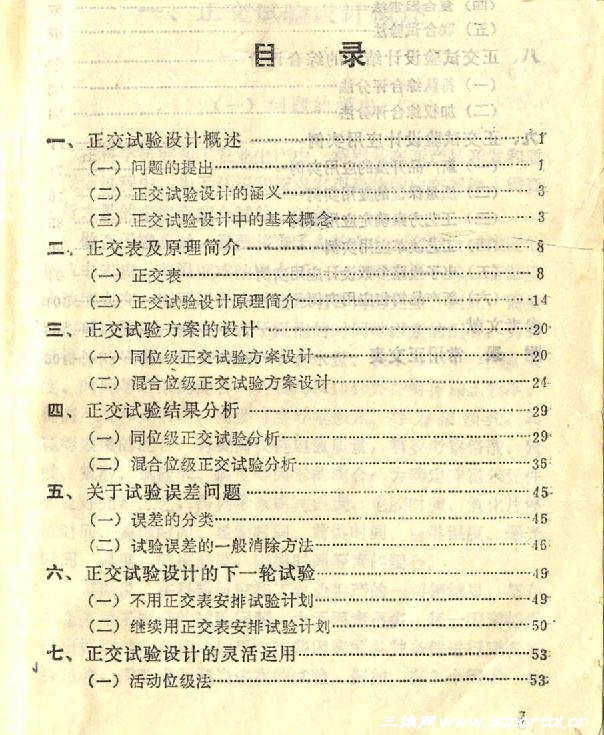 目 录
一、正交试验设计概述……1
（一）问题的提出……1
（二）正交试验设计的涵义……3
（三）正交试验设计中的基本概念……3
二、正交表及原理简介……8
（一）正交表……8
（二）正交试验设计原理简介……14
三、正交试验方案的设计……20
（一）同位级正交试验方案设计……20
（二）混合位级正交试验方案设计……24
四、正交试验结果分析……29
（一）同位级正交试验分析……29
（二）混合位级正交试验分析……36
五、关于试验误差问题……45
（一）误差的分类……45
（二）试验误差的一般消除方法……46
六、正交试验设计的下一轮试验……49
（一）不用正交表安排试验计划……49
（二）继续用正交表安排试验计划……50
七、正交试验设计的灵活运用……53
（一）活动位级法……53
三维网www.3dportal.cn